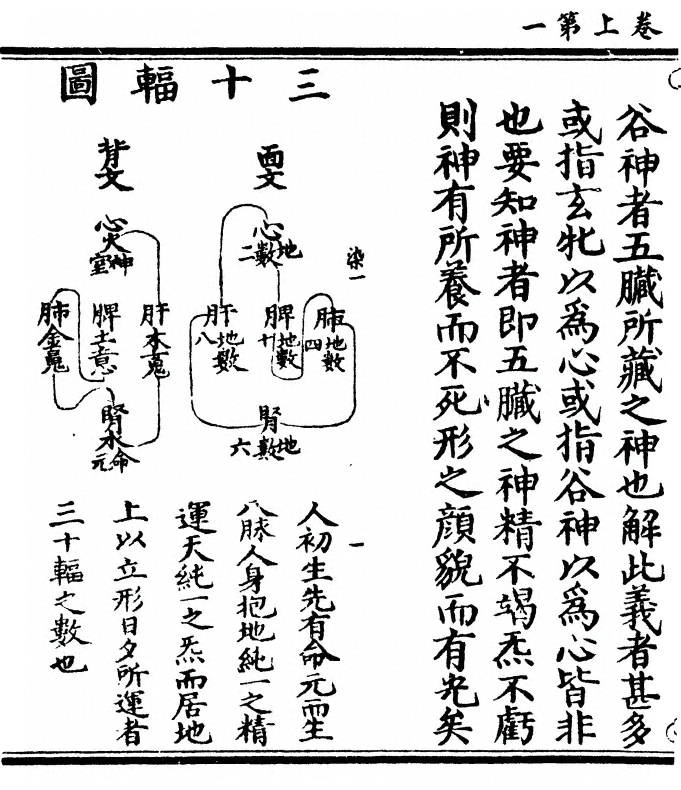 卷上第一
谷神者五臟所藏之神也解此義者甚多
或指玄牝以為心或指谷神以為心皆非
也要知神者即五臟之神精不竭炁不虧
則神有所養而不死形之顔貌而有光矣
三十輻圖
面文
染一
心
地數二
肺地數四
脾地數十
肝地數八
腎
地數六
背文
心火
神室
肝木䰟
脾土意
肺金魄
腎水
命元
一
人初生先有命元而生
八脉人身抱地純一之精
運天純一之炁而居地
上以立形日夕所運者
三十輻之數也